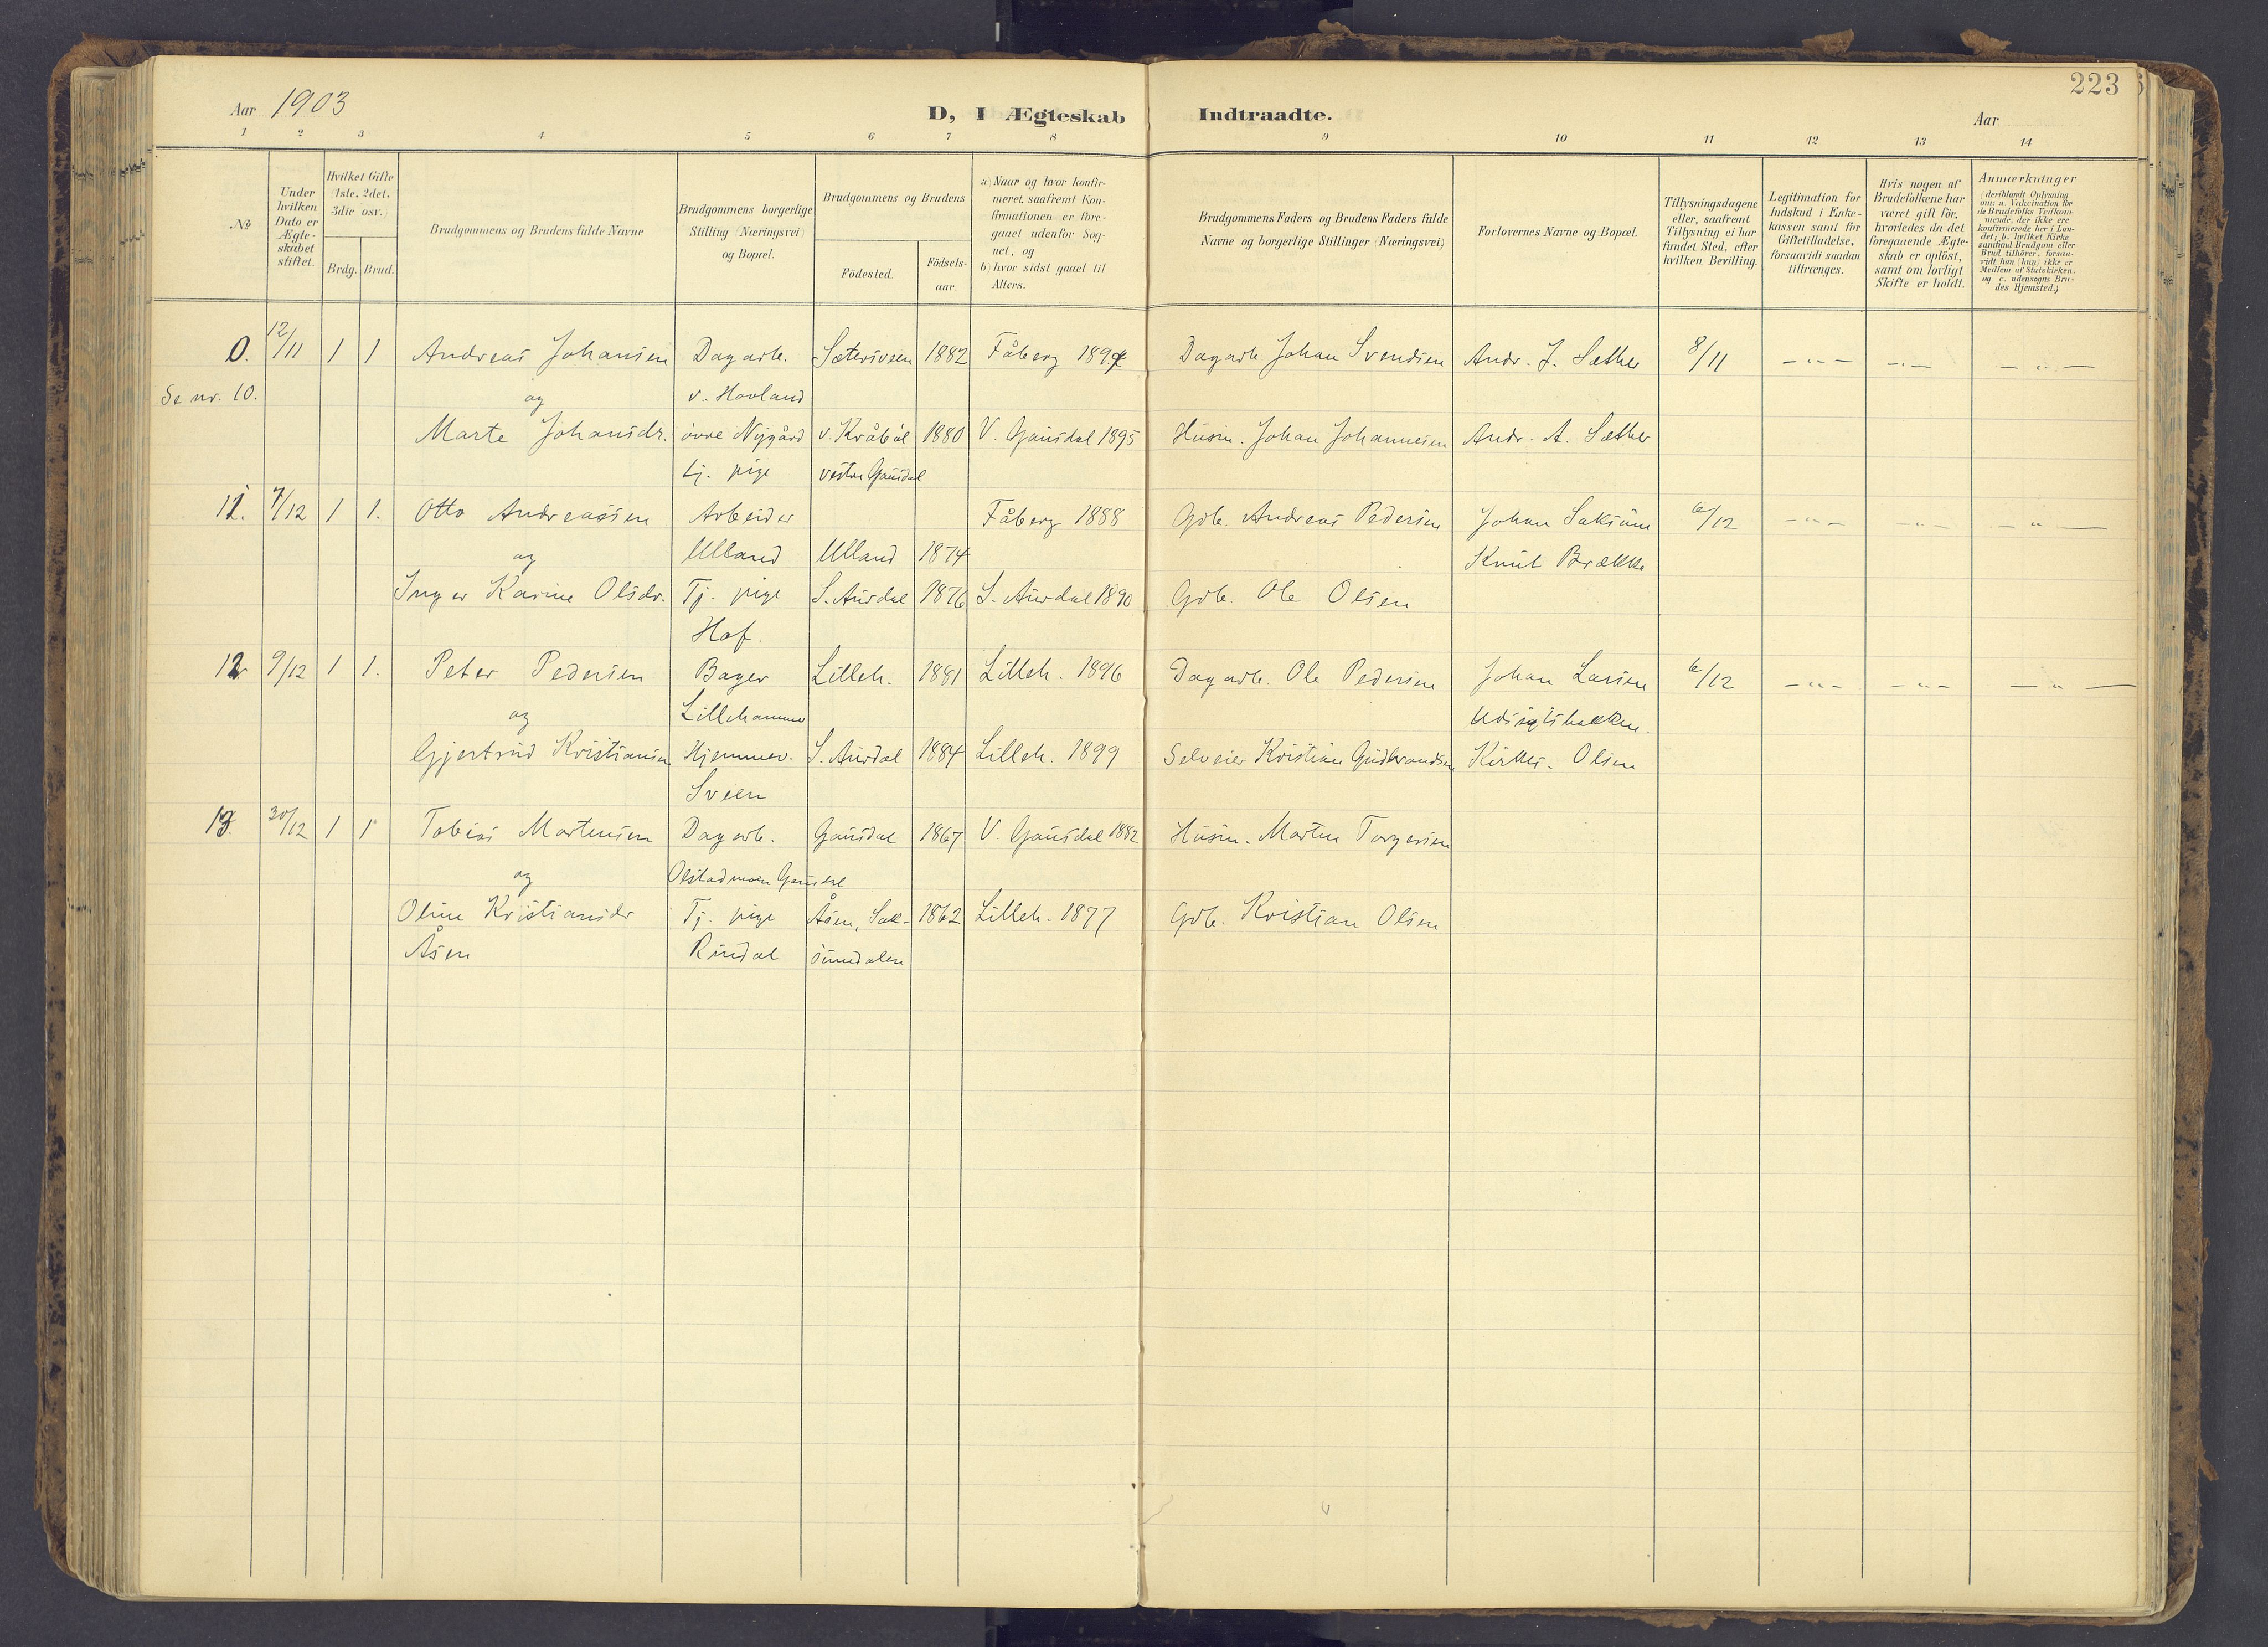 223
Aar 1903
D, I Ægteskab Indtraadte.
Aar
1 2 3 4 5 6 7 8 9 10 11 12 13 14
№
Under hvilken Dato er Ægte-skabet stiftet.
Hvilket Gifte (1ste, 2det, 3die osv.)
Brdg. Brud.
Brudgommens og Brudens fulde Navne
Brudgommens borgerlige Stilling (Næringsvei) og Bopæl.
Brudgommens og Brudens
Födested.
Födsels-aar.
a) Naar og hvor konfir-meret, saafremt Kon-firmationen er fore-gaaet udenfor Sog-net, og
b) hvor sidst gaaet til Alters.
Brudgommens Faders og Brudens Faders fulde Navne og borgerlige Stillinger (Næringsvei)
Forlovernes Navne og Bopæl.
Tillysningsdagene eller, saafremt Tillysning ei har fundet Sted, efter hvilken Bevilling.
Legitimation for Indskud i Enke-kassen samt for Giftetilladelse, forsaavidt saadan tiltrænges.
Hvis nogen af Brudefolkene har været gift för, hvorledes da det foregaaende Ægte-skab er oplöst, samt om lovligt Skifte er holdt.
Anmærkninger
(deriblandt Oplysning om: a. Vakcination for de Brudefolks Vedkom-mende, der ikke ere konfirmerede her i Lan-det; b. hvilket Kirke-samfund Brudgom eller Brud tilhörer, forsaa-vidt han (hun) ikke er Medlem af Statskirken, og c. udensogns Bru-des Hjemsted.)
0. 12/11 1 1 Andreas Johansen Dagarb. Sætersveen 1882 Fåberg 1897 Dagarb Johan Svendsen Andr. J. Sæther 8/11 – " – – " – – " –
Se nr. 10. og v. Hovland
Marte Johansdr. övre Nygård v. Kråböl 1880 V. Gausdal 1895 Husm. Johan Johannesen Andr. A. Sæther
tj. pige vestre Gausdal
11. 7/12 1 1. Otto Andreassen Arbeider Fåberg 1888 Gdb. Andreas Pedersen Johan Saksum 6/12 – " – – " – – " –
og Ulland Ulland 1874 Knut Brække
Inger Karine Olsdr. Tj. pige S. Aurdal 1876 S. Aurdal 1890 Gdb. Ole Olsen
Hof.
12 9/12 1 1. Peter Pedersen Bager Lilleh. 1881 Lilleh. 1896 Dagarb. Ole Pedersen Johan Larsen 6/12 – " – – " – – " –
og Lillehammer Udsigtsbakken.
Gjertrud Kristiansen Hjemmev. S. Aurdal 1884 Lilleh. 1899 Selveier Kristian Gudbrandsen Olsen
Sveen
13. 30/12 1 1 Tobias Martensen Dagarb. Gausdal 1867 V. Gausdal 1882 Husm. Marten Torgersen
og Olstadmoen Gausdal
Oline Kristiansdr Tj. pige Åsen, Sak- 1862 Lilleh. 1877 Gdb. Kristian Olsen
Åsen Rindal sumdalen